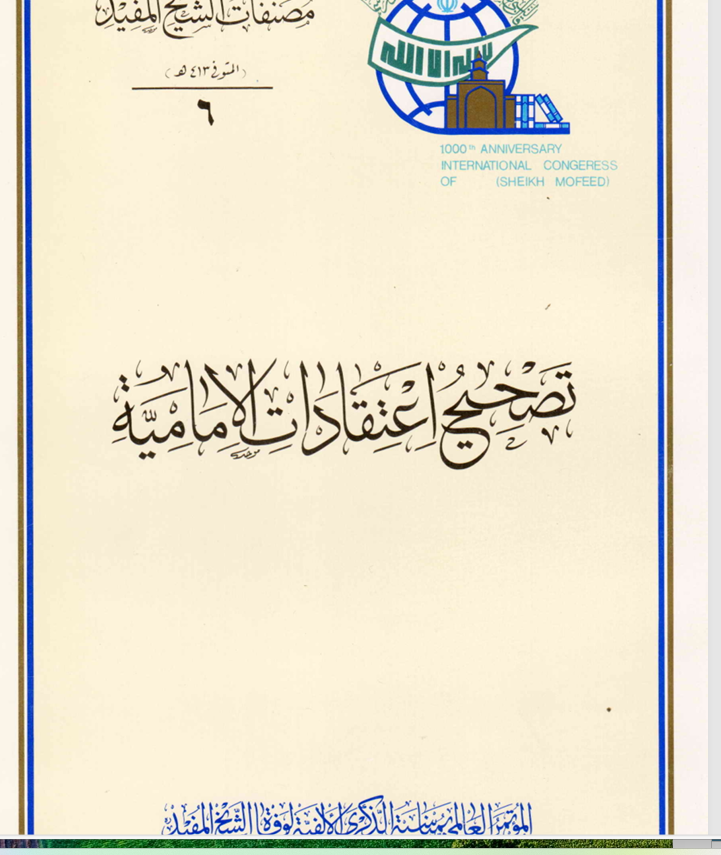 مصنفات الشيخ المفيد
(المتوفى ٤١٣ هـ)
٦
لا إله إلا الله
1000th ANNIVERSARY
INTERNATIONAL CONGERESS
OF (SHEIKH MOFEED)
تَصْحِيحُ اعْتِقَادَاتِ الْإِمَامِيَّةِ
المؤتمر العالمي بمناسبة الذكرى الألفية لوفاة الشيخ المفيد